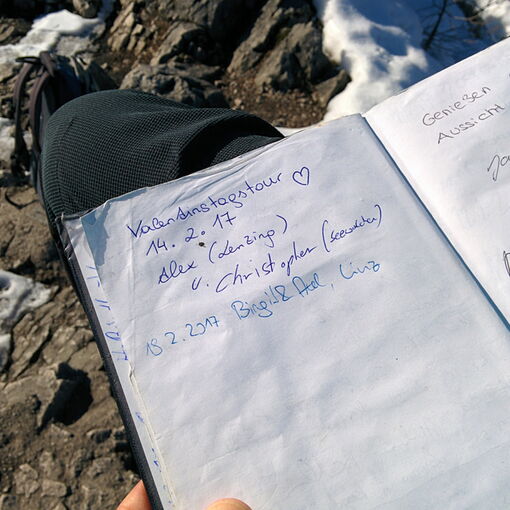 Valentinstagstour ♡
14. 2. 17
Alex (Lenzing)
u. Christopher (Seewalchen)
18.2.2017 Birgit & Axel, Linz
Genießen
Aussicht